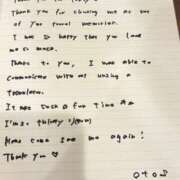 Thank you for choosing me as one
of you travel memories.
I am so happy that you love
me so much.
Thanks to you, I was able to
communicate with me using a
translator.
It was such a fun time
I'm a thirsty
Please come see me again!
Thank you ♡